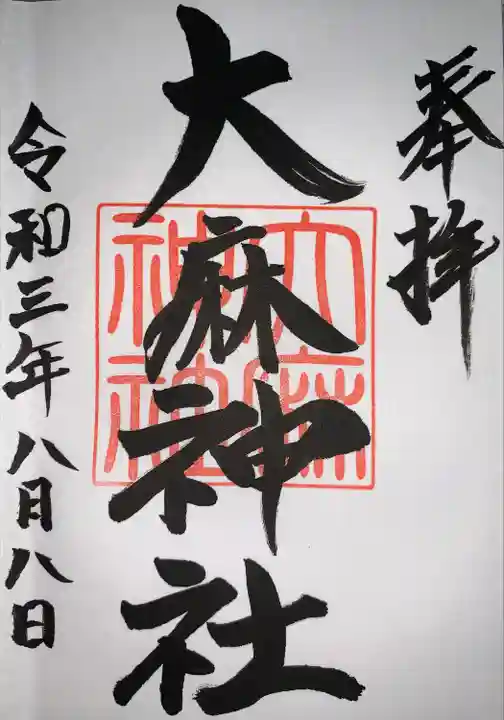 奉拝
大麻神社
大麻
神社
令和三年八月八日